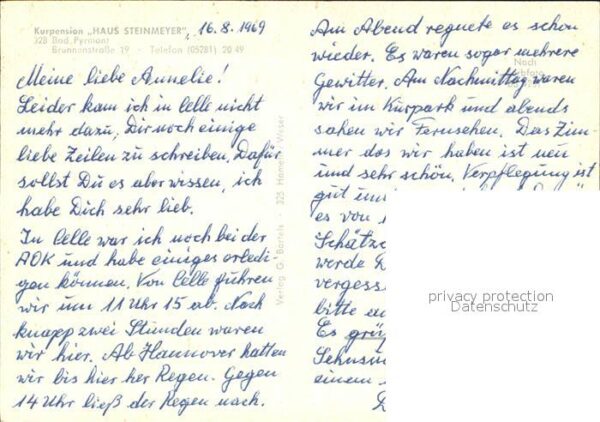 Kurpension „HAUS STEINMEYER"
328 Bad Pyrmont
Brunnenstraße 19 - Telefon (05281) 20 49
, 16.8.1969
Meine liebe Annelie!
Leider kam ich in Celle nicht
mehr dazu, Dir noch einige
liebe Zeilen zu schreiben. Dafür
sollst Du es aber wissen, ich
habe Dich sehr lieb.
In Celle war ich noch bei der
AOK und habe einiges erledi
gen können. Von Celle fuhren
wir um 11 Uhr 15 ab. Nach
knapp zwei Stunden waren
wir hier. Ab Hannover hatten
wir bis hier her Regen. Gegen
14 Uhr ließ der Regen nach.
Verlag G. Bartels - 325 Hameln/Weser
Am Abend regnete es schon
wieder. Es waren sogar mehrere
Gewitter. Am Nachmittag waren
wir im Kurpark und abends
sahen wir Fernsehen. Das Zim-
mer das wir haben ist neu
und sehr schön. Verpflegung ist
gut
es von
Schätzc
werde D
vergess
bitte
Es grü
Sehnsu
einem
Nach
privacy protection
Datenschutz